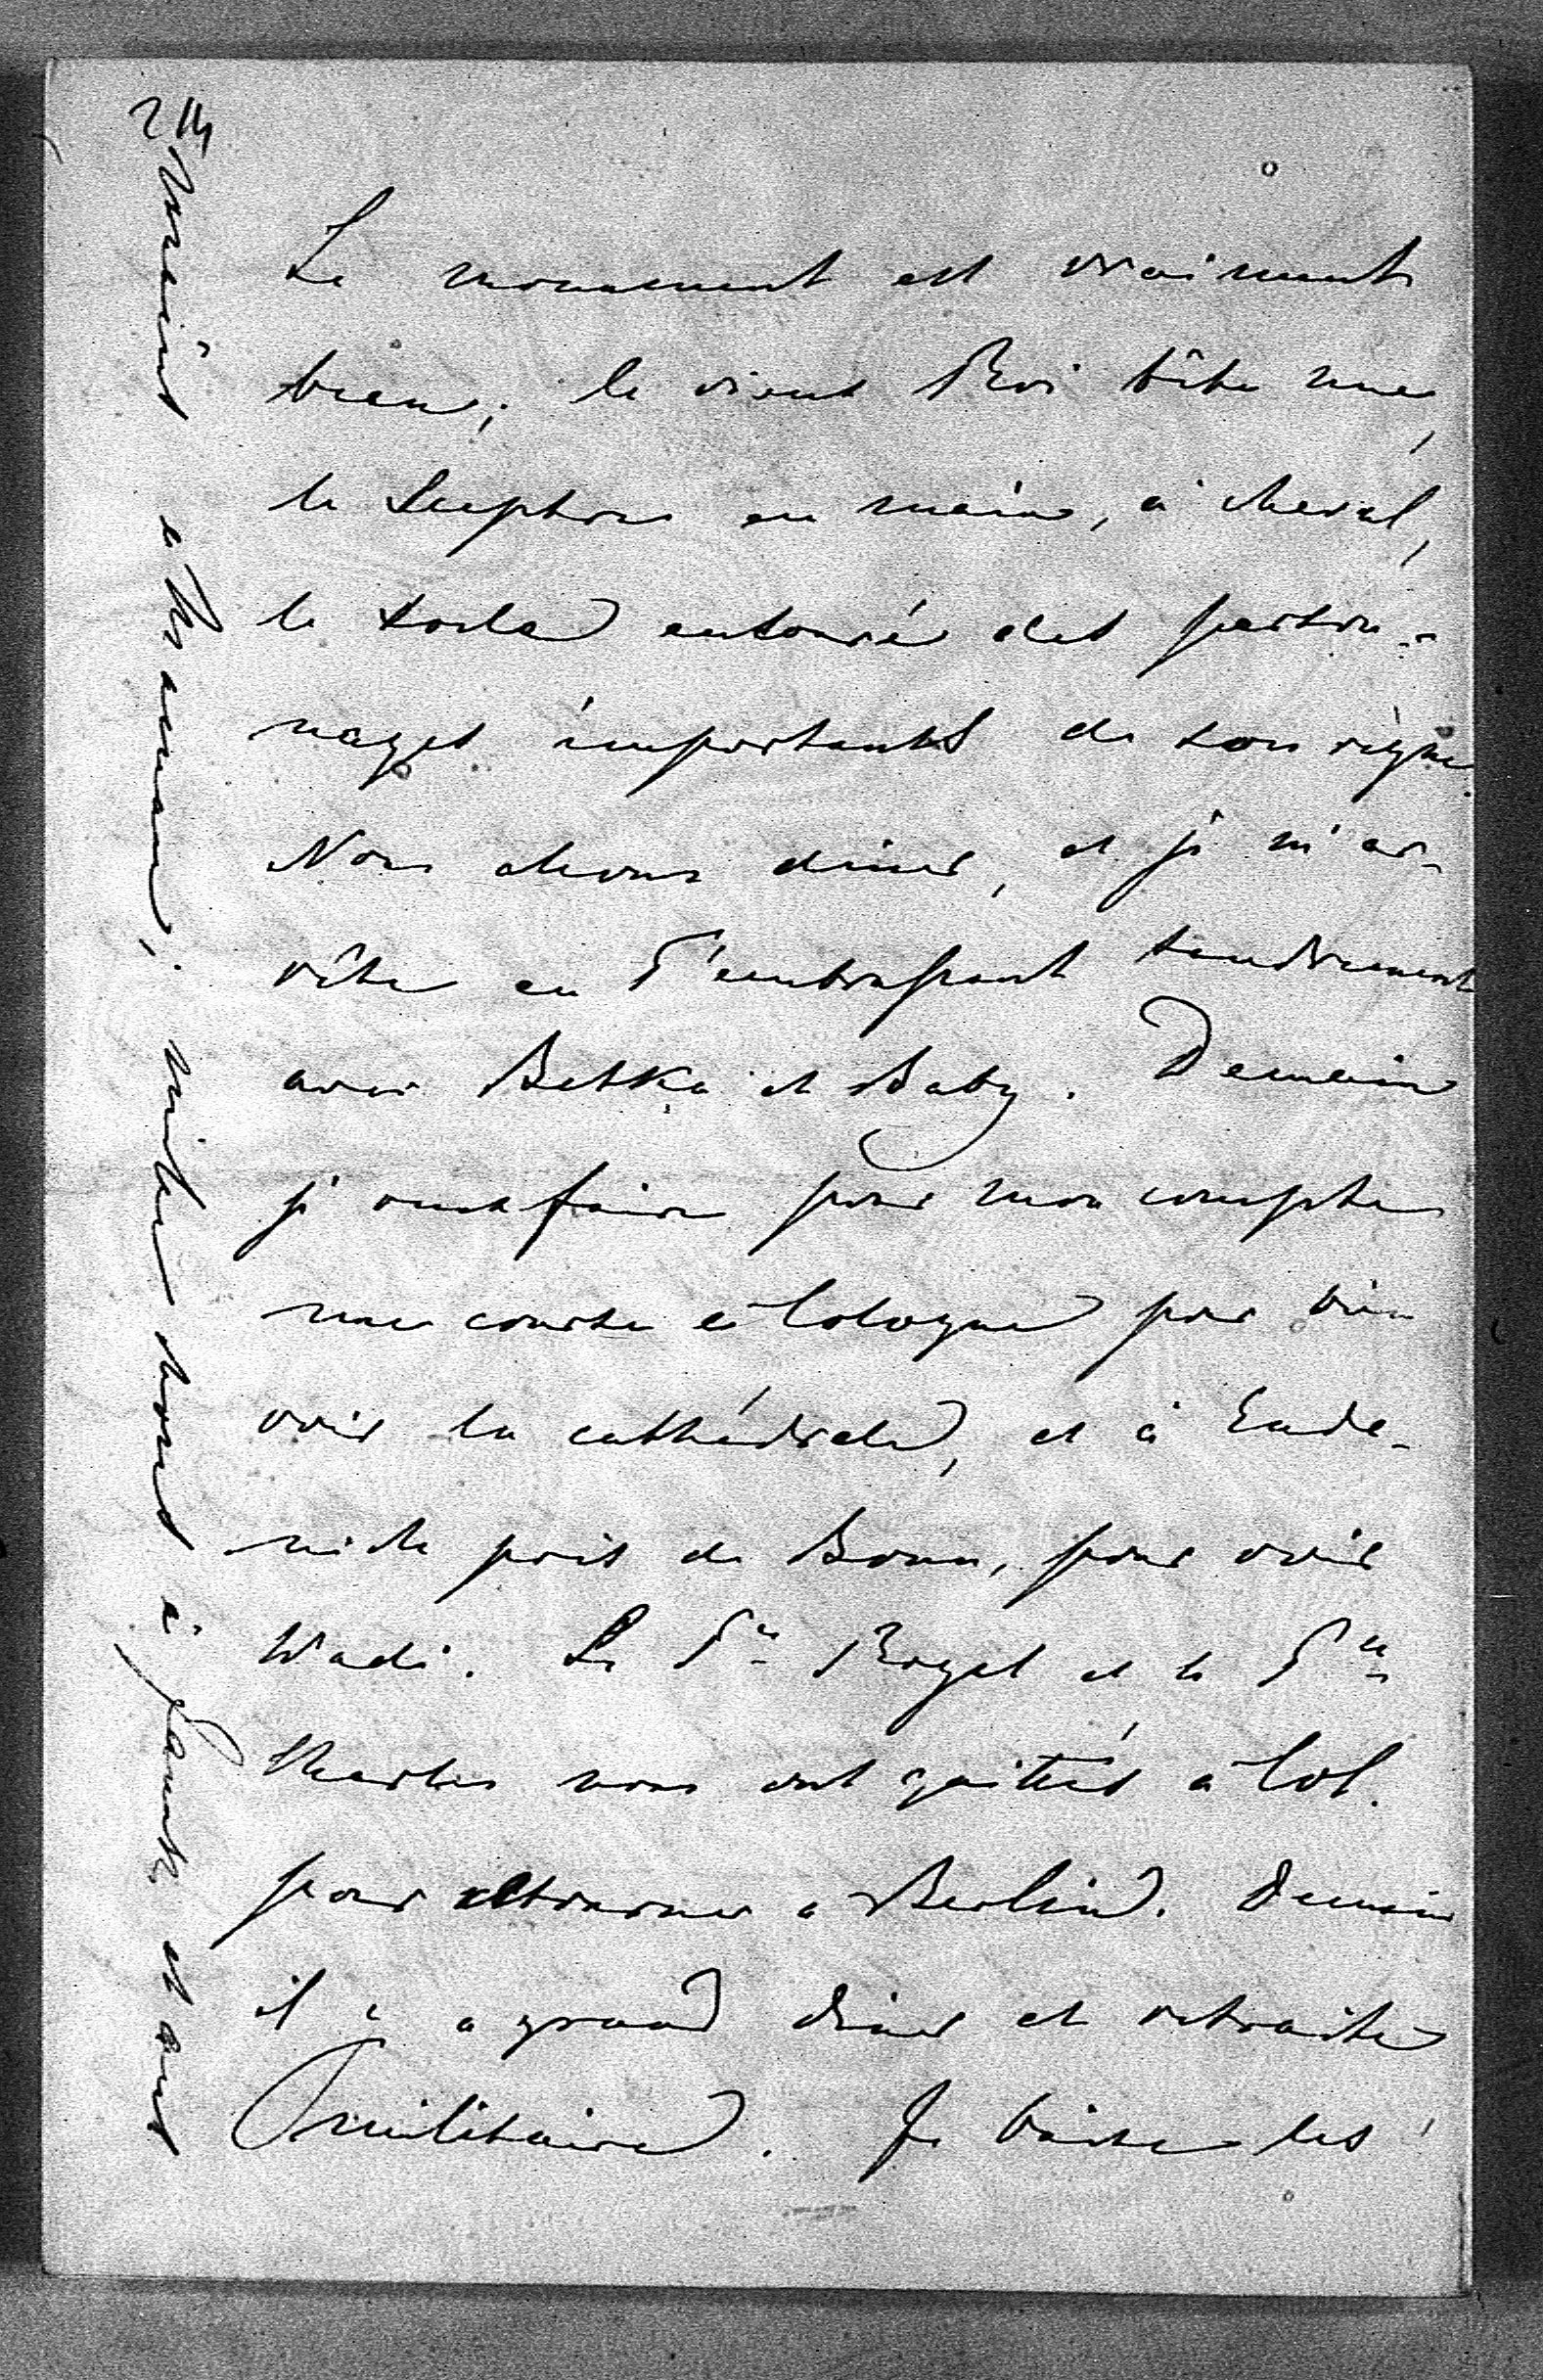 Le monument est vraiment
beau; le vieux Roi tête nue,
le Sceptre en main, à cheval,
le socle entouré des person-
nages importants de son règne.
Nous allons diner, et je m'ar-
rête en T'embrassant tendrement
avec Betka et Baby. Demain
je veux faire pour mon compte
une course à Cologne pour bien
voir la cathédrale, et à Ende-
nich près de Bonn, pour voir
Wadi. Le Pce Royal et le Pce
Charles nous ont quittés à Col.
pour retourner a Berlin. Demain
il y a grand diner et retraite
militaire. Je baise les
mains a Maman; mille choses à Jeank et aux